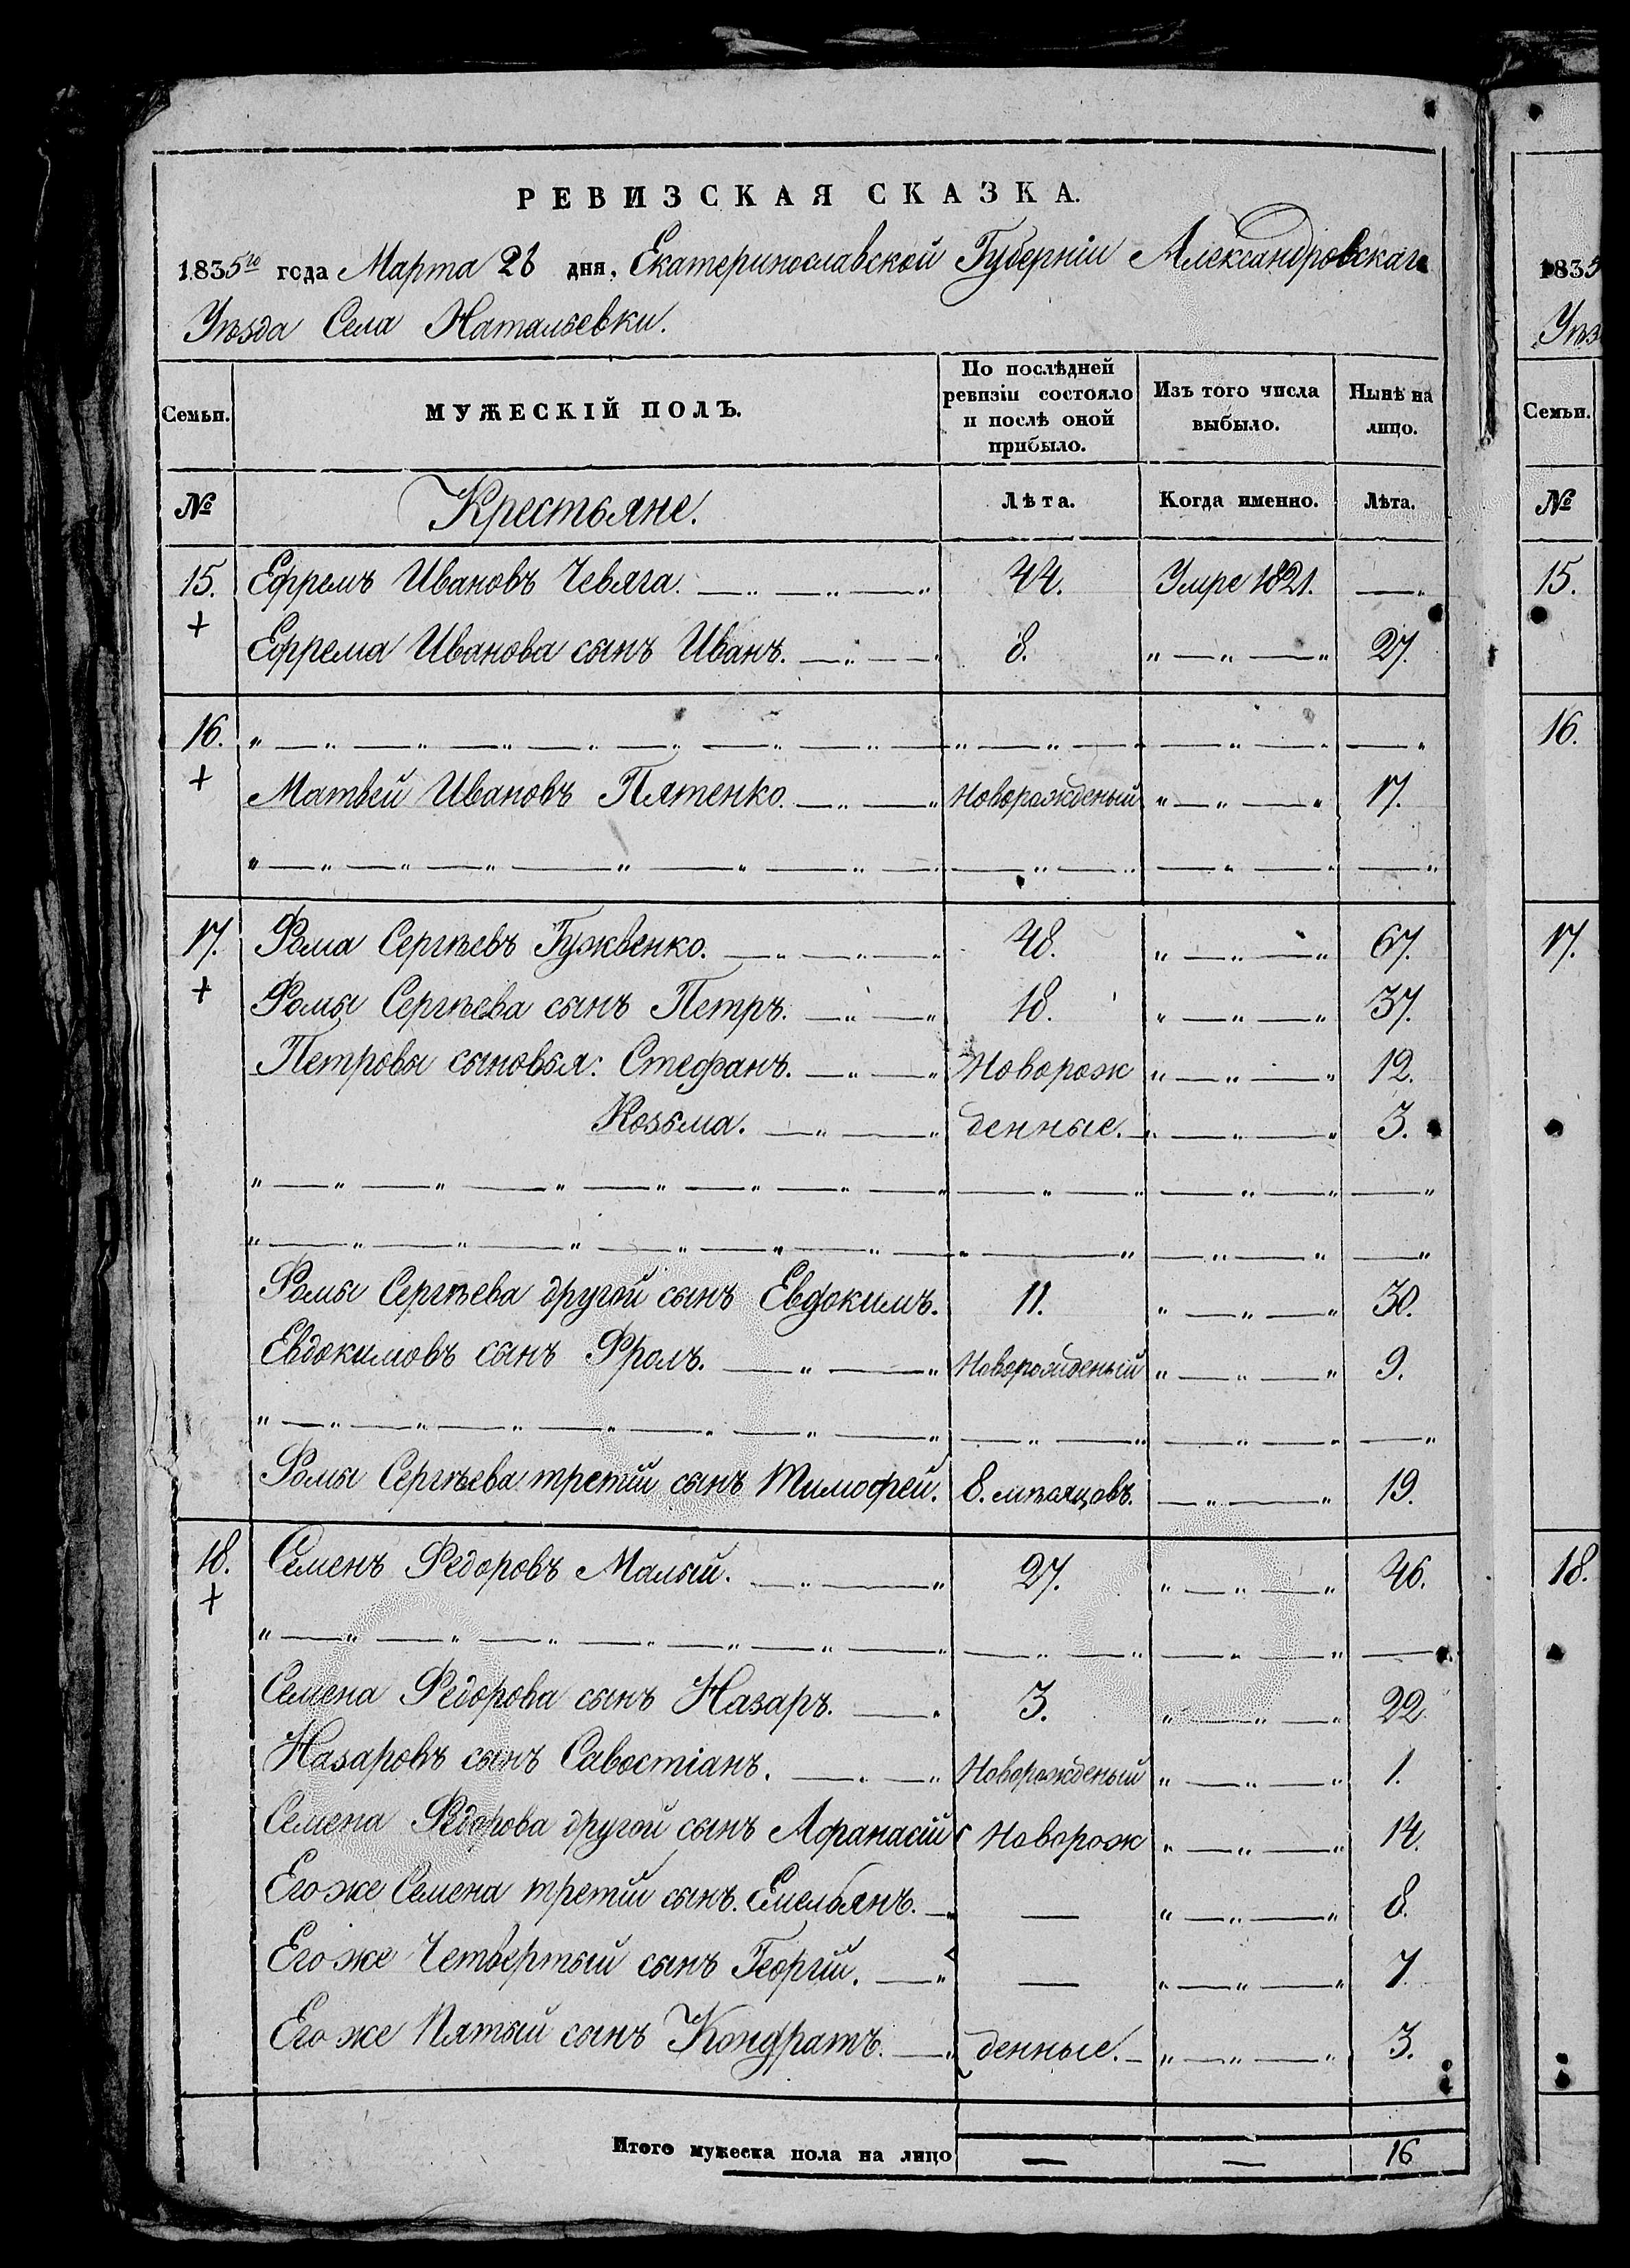 РЕВИЗСКАЯ СКАЗКА.
1835го года Марта 28 дня, Екатеринославской Губерніи Александровскаго
Уѣзда Села Натальевки.
Семьи. МУЖЕСКІЙ ПОЛЪ. По послѣдней ревизіи состояло и послѣ оной прибыло. Изъ того числа выбыло. Нынѣ на лицо.
№ Крестьяне. Лѣта. Когда именно. Лѣта.
15. Ефремъ Ивановъ Чевяга. 44. Умре 1821.
Ефрема Иванова сынъ Иванъ. 8. 27.
16.
Матвей Ивановъ Пятенко. Новорожденый 17.
17. Фома Сергѣевъ Гужвенко. 48. 67.
Фомы Сергѣева сынъ Петръ. 18. 37.
Петровы сыновья: Стефанъ. Новорож 12.
Козьма. денные. 3.
Фомы Сергѣева другой сынъ Евдокимъ. 11. 30.
Евдокимовъ сынъ Фролъ. Новорожденый 9.
Фомы Сергѣева третій сынъ Тимофей. 8. мѣсяцовъ. 19.
18. Семенъ Федоровъ Малый. 27. 46.
Семена Федорова сынъ Назаръ. 3. 22.
Назаровъ сынъ Савостіанъ. Новорожденый 1.
Семена Федорова другой сынъ Афанасій Новорож 14.
Его же Семена третій сынъ. Емельянъ. 8.
Его же Четвертый сынъ Георгій. 7.
Его же Пятый сынъ Кондратъ. денные. 3.
Итого мужеска пола на лицо 16
1835
Уѣз
Семьи.
№
15.
16.
17.
18.